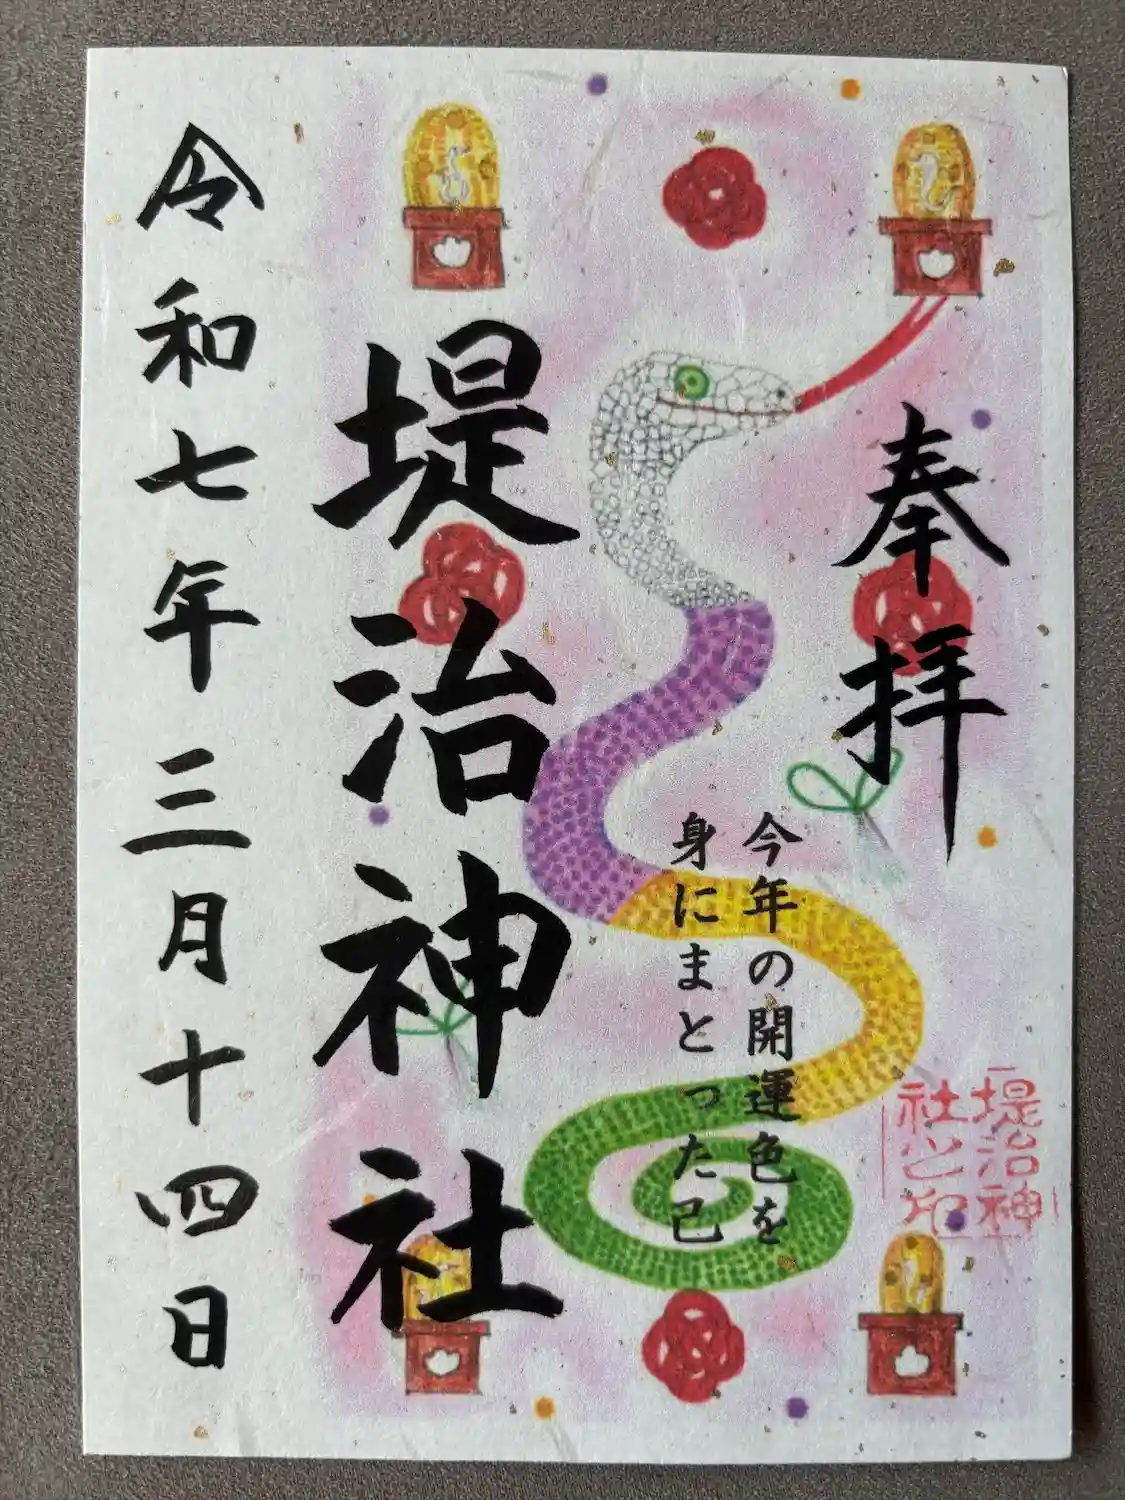 奉拝
今年の開運色を
身にまとった己
堤治神社
令和七年三月十四日
堤治神
社之印